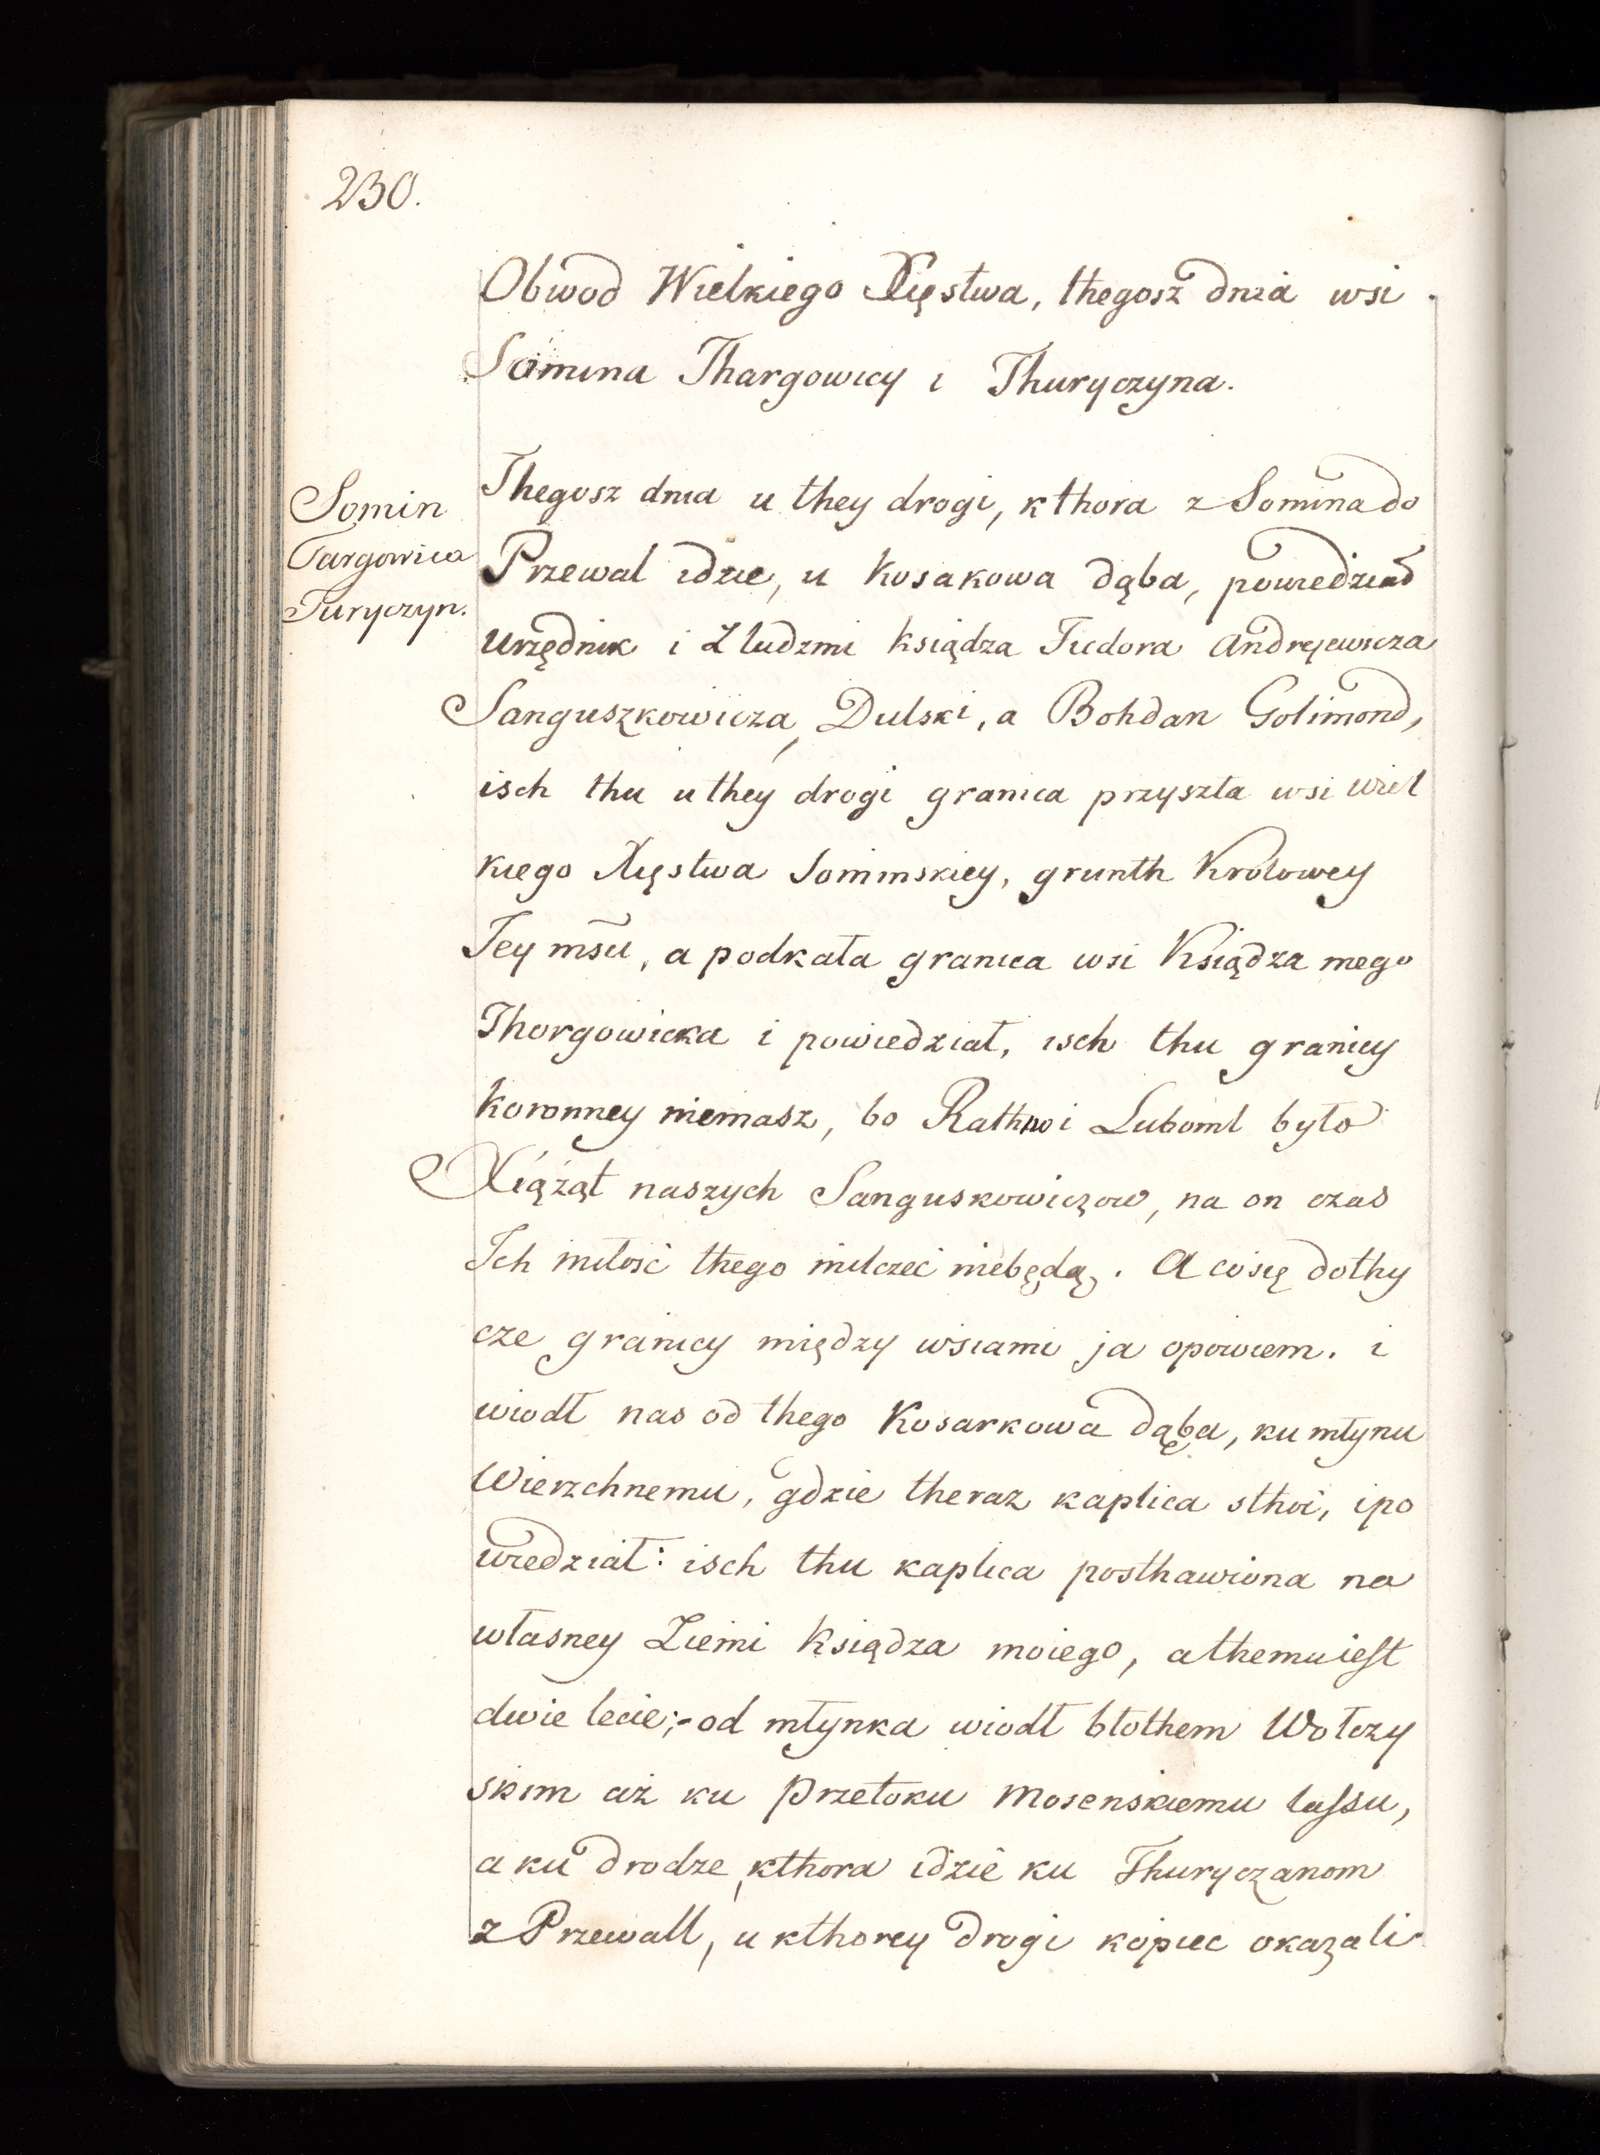 230.
Obwod Wielkiego Xięstwa, thegosz dnia wsi
Somina Thargowicy i Thuryczyna.
Somin
Targowica
Turyczyn.
Thegosz dnia u they drogi, kthora z Somina do
Przewal idzie, u Kosakowa dąba, powiedział
Urzędnik i Z ludzmi książdza Fiedora Andrejewicza
Sanguszkowicza, Dulski, a Bohdan Golimond,
isch thu u they drogi granica przyszła wsi wiel
kiego Xięstwa Sominskiey, grunth Krolowey
Jey msci, a podkała granica wsi Książdza mego
Thorgowicka i powiedział, isch thu granicy
Koronney niemasz, bo Rathno i Luboml było
Xiążąt naszych Sanguskowiczow, na on czas
Ich miłosć thego milczeć niebędą. A cosię dothy
cze granicy między wsiami ja opowiem. i
wiodł nas od thego Kosarkowa dąba, ku młynu
Wierzchnemu, gdzie theraz kaplica sthoi, i po
wiedział: isch thu kaplica posthawiona na
własney Ziemi Książdza moiego, a themu iest
dwie lecie;- od młynka wiodł błothem Wołczy
skim aż ku Przetoku Mosenskiemu lassu,
a ku drodze, kthora idzie ku Thuryczanom
z Przewall, u kthorey drogi kopiec okazali